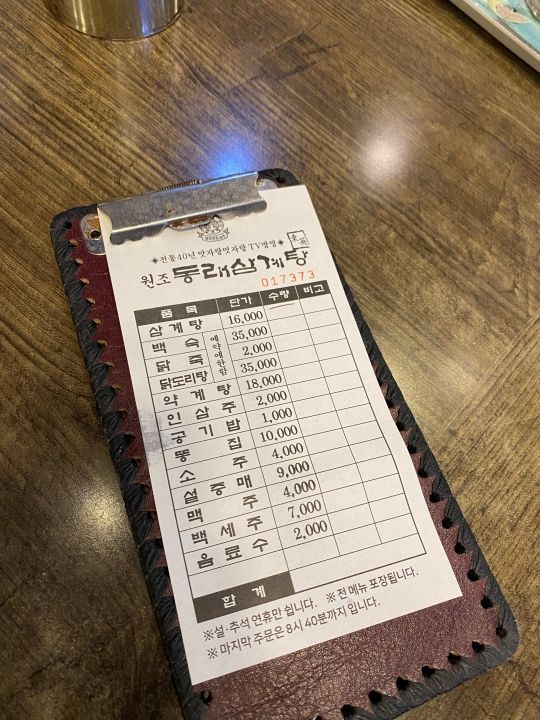 ◈전통40년 맛자랑멋자랑 TV방영◈
원조 동래삼계탕
017373
품목 단가 수량 비고
삼계탕 16,000
백숙 예약에한함 35,000
닭죽 2,000
닭도리탕 35,000
약계탕 18,000
인삼주 2,000
공기밥 1,000
똥집 10,000
소주 4,000
설중매 9,000
맥주 4,000
백세주 7,000
음료수 2,000
합계
※설·추석 연휴만 쉽니다. ※전메뉴 포장됩니다.
※마지막 주문은 8시 40분까지 입니다.